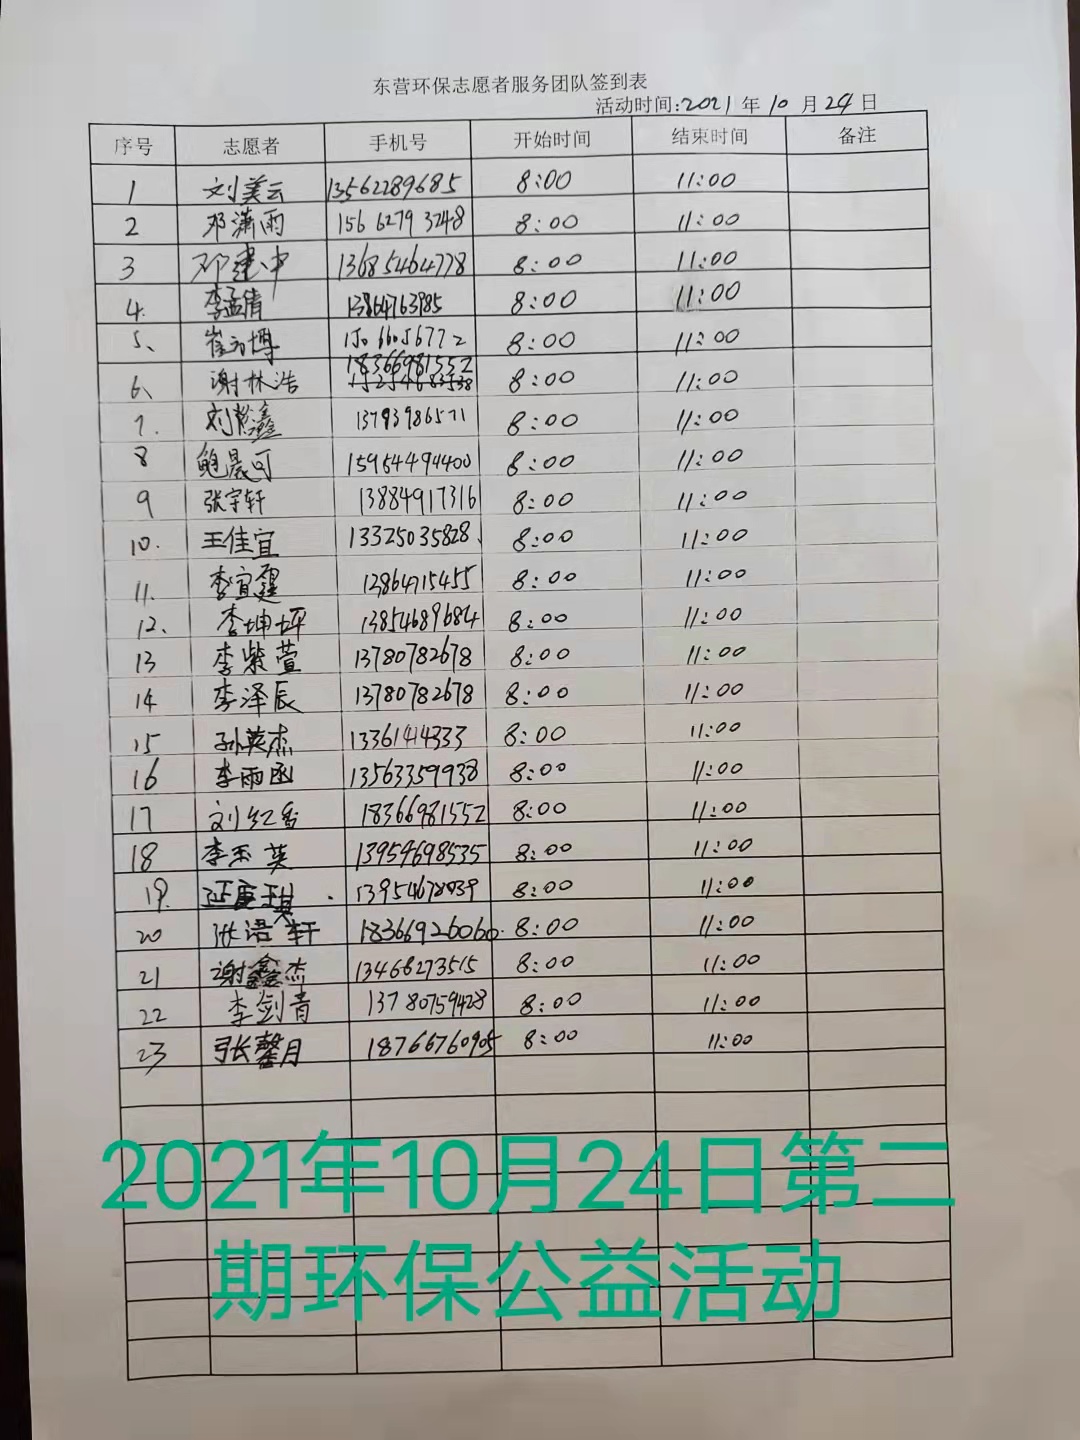 东营环保志愿者服务团队签到表
活动时间:2021年10月24日
序号 志愿者 手机号 开始时间 结束时间 备注
1 刘美云 13562289685 8:00 11:00
2 邓潇雨 156 6279 3248 8:00 11:00
3 邓建中 13685464778 8:00 11:00
4. 李孟倩 13864763985 8:00 11:00
5、 8:00 11:00
6、 谢林浩 18366981552 8:00 11:00
7. 13793986571 8:00 11:00
8 鲍晨可 15964494400 8:00 11:00
9 张宇轩 13884917316 8:00 11:00
10. 王佳宜 13325035828 8:00 11:00
11. 李宜霆 8:00 11:00
12、 李坤坪 13854689684 8:00 11:00
13 李紫萱 13780782678 8:00 11:00
14 李泽辰 13780782678 8:00 11:00
15 孙英杰 13361414333 8:00 11:00
16 李雨函 13563359938 8:00 11:00
17 刘红香 18366981552 8:00 11:00
18 李玉英 13954698535 8:00 11:00
19. 8:00 11:00
20 张语轩 18366926060 8:00 11:00
21 谢鑫杰 13468273515 8:00 11:00
22 李剑青 13780759428 8:00 11:00
23 张馨月 18766760905 8:00 11:00
2021年10月24日第二
期环保公益活动